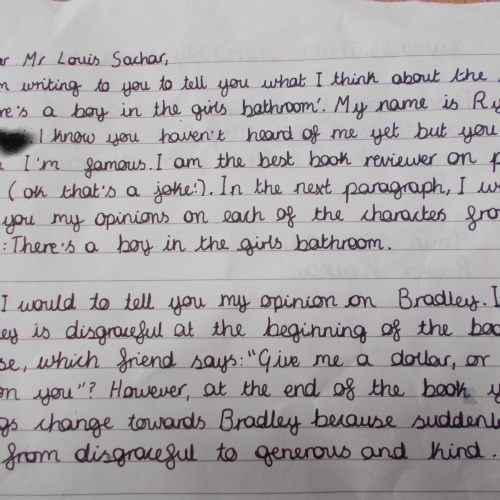 Mr Louis Sachar,
writing to you to tell you what I think about the
a boy in the girls bathroom'. My name is
I know you haven't heard of me yet but you
I'm famous. I am the best book reviewer on
(ok that's a joke!). In the next paragraph, I
you my opinions on each of the charactes
: There's a boy in the girls bathroom.
I would to tell you my opinion on Bradley.
is disgraceful at the beginning of the
which friend says: "Give me a dollar, or
on you"? However, at the end of the book
change towards Bradley because suddenly
from disgraceful to generous and kind.